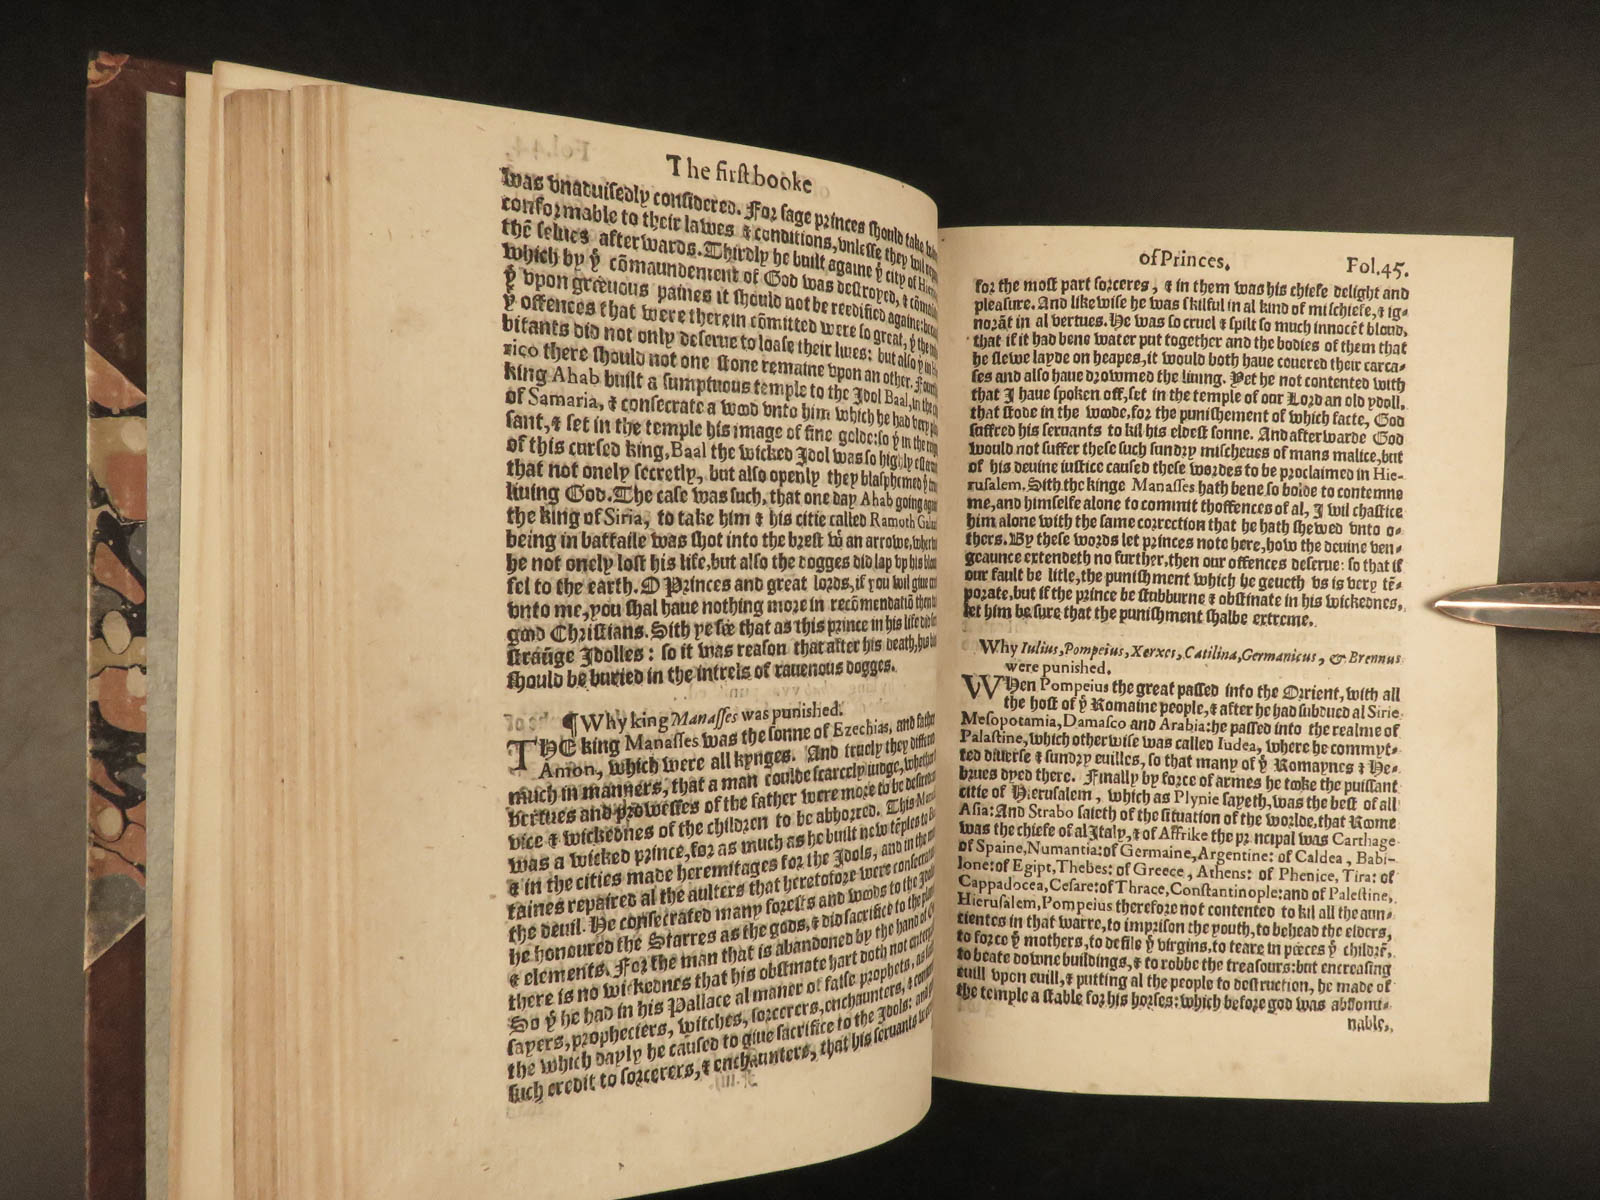 The first booke
was vnaduisedly considered. For sage princes should take
conformable to their lawes & conditions, vnlesse they wil
thē selues afterwards. Thirdly he built againe ẏ city of
which by ẏ cōmaundement of God was destroyed, &
ẏ vpon greeuous paines it should not be reedified againe:
ẏ offences that were therein cōmitted were so great, ẏ the
bitants did not only deserue to loase their liues: but also ẏ in
rico there should not one stone remaine vpon an other.
king Ahab built a sumptuous temple to the Idol Baal, in the
of Samaria, & consecrate a wood vnto him which he had very
sant, & set in the temple his image of fine golde: so ẏ in the
of this cursed king, Baal the wicked Idol was so highly
that not onely secretly, but also openly they blasphemed ẏ
liuing God. The case was such, that one day Ahab going
the king of Siria, to take him & his citie called Ramoth
being in battaile was shot into the brest wͭ an arrowe,
he not onely lost his life, but also the dogges did lap vp his
fel to the earth. O Princes and great lords, if you wil giue
vnto me, you shal haue nothing more in recōmendatiō then
good Christians. Sith ye see that as this prince in his life did
straūge Idolles: so it was reason that after his death, his
should be buried in the intrels of rauenous dogges.
¶ Why king Manasses was punished.
THE king Manasses was the sonne of Ezechias, and father
Amon, which were all kynges. And truely they
much in manners, that a man coulde scarcely iudge, whether
vertues and prowesses of the father were more to be
vice & wickednes of the children to be abhorred. This
was a wicked prince, for as much as he built new tēples to
& in the cities made heremitages for the Idols, and in the
taines repaired al the aulters that heretofore were consecrate
the deuil. He consecrated many forests and woods to the
he honoured the Starres as the gods, & did sacrifice to the
& elements. For the man that is abandoned by the hand of
there is no wickednes that his obstinate hart doth not
So ẏ he had in his Pallace al maner of false prophets,
sayers, propheciers, witches, sorcerers, enchaunters, &
the which dayly he caused to giue sacrifice to the Idols: and
such credit to sorcerers, & enchaunters, that his seruants
of Princes. Fol.45.
for the most part sorceres, & in them was his chiefe delight and
pleasure. And likewise he was skilful in al kind of mischiefe, & ig-
norāt in al vertues. He was so cruel & spilt so much innocēt bloud,
that if it had bene water put together and the bodies of them that
he slewe layde on heapes, it would both haue couered their carca-
ses and also haue drowmed the liuing. Yet he not contented with
that I haue spoken off, set in the temple of our Lord an old ydoll,
that stode in the woode, for the punishement of which facte, God
suffred his seruants to kil his eldest sonne. And afterwarde God
would not suffer these such sundry mischeues of mans malice, but
of his deuine iustice caused these wordes to be proclaimed in Hie-
rusalem. Sith the kinge Manasses hath bene so bolde to contemne
me, and himselfe alone to commit thoffences of al, I wil chastice
him alone with the same correction that he hath shewed vnto o-
thers. By these words let princes note here, how the deuine ven-
geaunce extendeth no further, then our offences deserue: so that if
our fault be litle, the punishment which he geueth vs is very tē-
porate, but if the prince be stubburne & obstinate in his wickednes,
let him be sure that the punishment shalbe extreme.
Why Iulius, Pompeius, Xerxes, Catilina, Germanicus, & Brennus
were punished.
WHen Pompeius the great passed into the Orient, with all
the host of ẏ Romaine people, & after he had subdued al Sirie,
Mesopotamia, Damasco and Arabia: he passed into the realme of
Palastine, which other wise was called Iudea, where he commyt-
ted diuerse & sundry euilles, so that many of ẏ Romaynes & He-
brues dyed there. Finally by force of armes he tooke the puissant
citie of Hierusalem, which as Plynie sayeth, was the best of all
Asia: And Strabo saieth of the situation of the worlde, that Roome
was the chiefe of al Italy, & of Affrike the principal was Carthage
of Spaine, Numantia: of Germaine, Argentine: of Caldea, Babi-
lone: of Egipt, Thebes: of Greece, Athens: of Phenice, Tira: of
Cappadocea, Cesare: of Thrace, Constantinople: and of Palestine,
Hierusalem, Pompeius therefore not contented to kil all the aun-
tientes in that warre, to imprison the youth, to behead the elders,
to force ẏ mothers, to defile ẏ virgins, to teare in pœces ẏ childrē,
to beate downe buildings, & to robbe the treasours: but encreasing
euill vpon euill, & putting al the people to destruction, he made of
the temple a stable for his horses: which before god was abhomi-
nable.